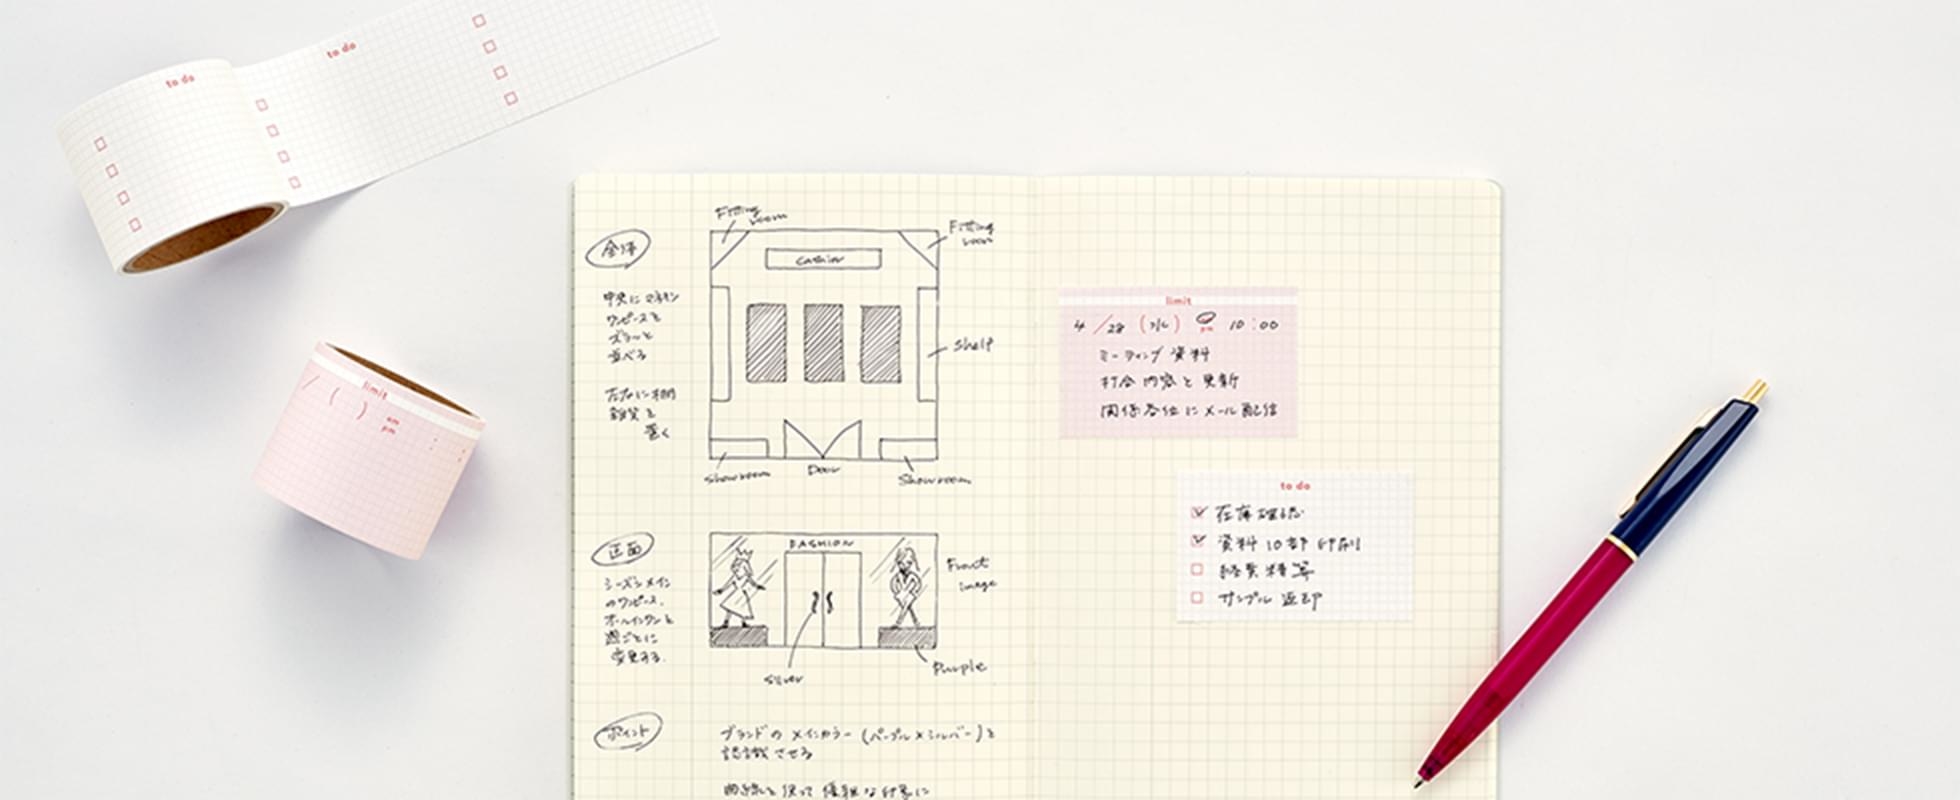 to do
to do
limit
/ ( ) am
pm :
全体
Fitting
room
Fitting
room
cashier
中央にマネキン
ワンピースを
ズラーっと
並べる
Shelf
左右に棚
雑貨を
置く
Showroom
Door
Showroom
正面
FASHION
Front
image
シーズンメイン
のワンピース、
オールインワンを
週ごとに
変更する.
Silver
Purple
ポイント
ブランドの メインカラー (パープル×シルバー)を
認識させる
曲線を使って 優雅な印象に
limit
4/28 (水) pm 10:00
ミーティング 資料
打合内容を更新
関係各位にメール配信
to do
在庫確認
資料10部印刷
経費精算
サンプル返却